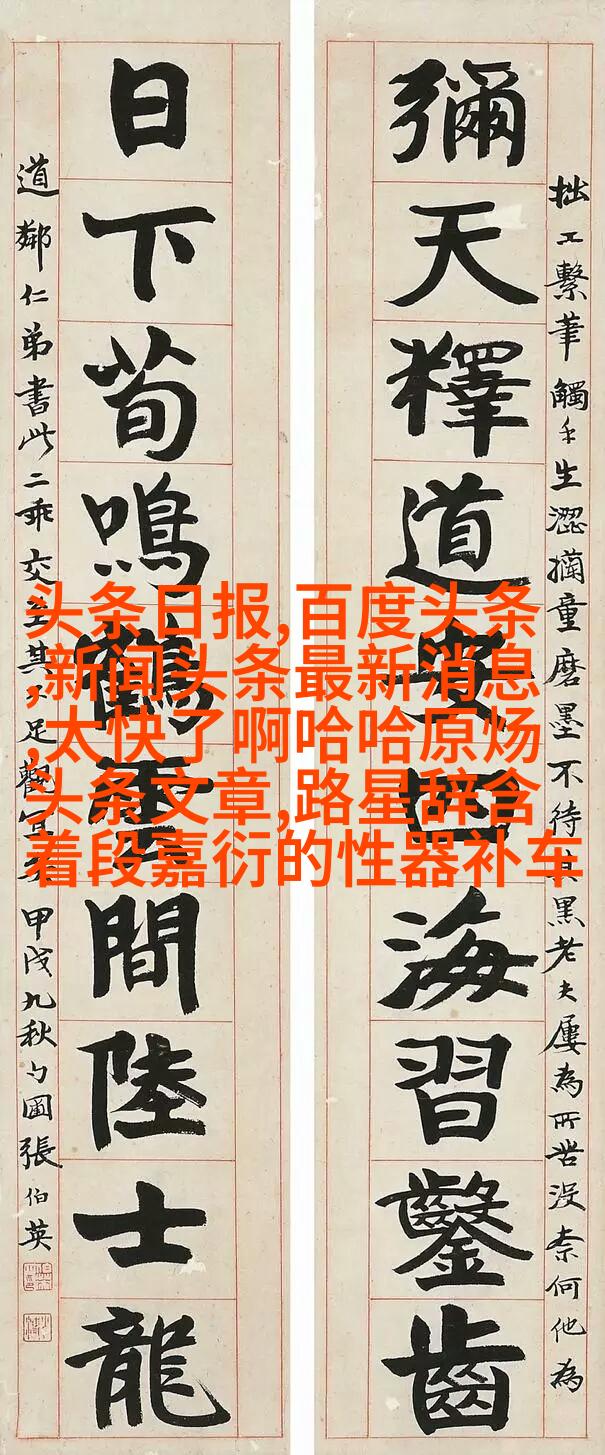 拙工繫筆觸手生澀 童磨墨不待其黑老夫屢為所苦沒奈何他為
彌天釋道安四海習鑿齒
日下荀鳴鶴雲間陸士龍
道鄰仁弟書此二乖交至其 足觀宜矣甲戌九秋勺圃張伯英
头条日报,百度头条
,新闻头条最新消息
,太快了啊哈哈原炀
头条文章,路星辞含
着段嘉衍的性器补车